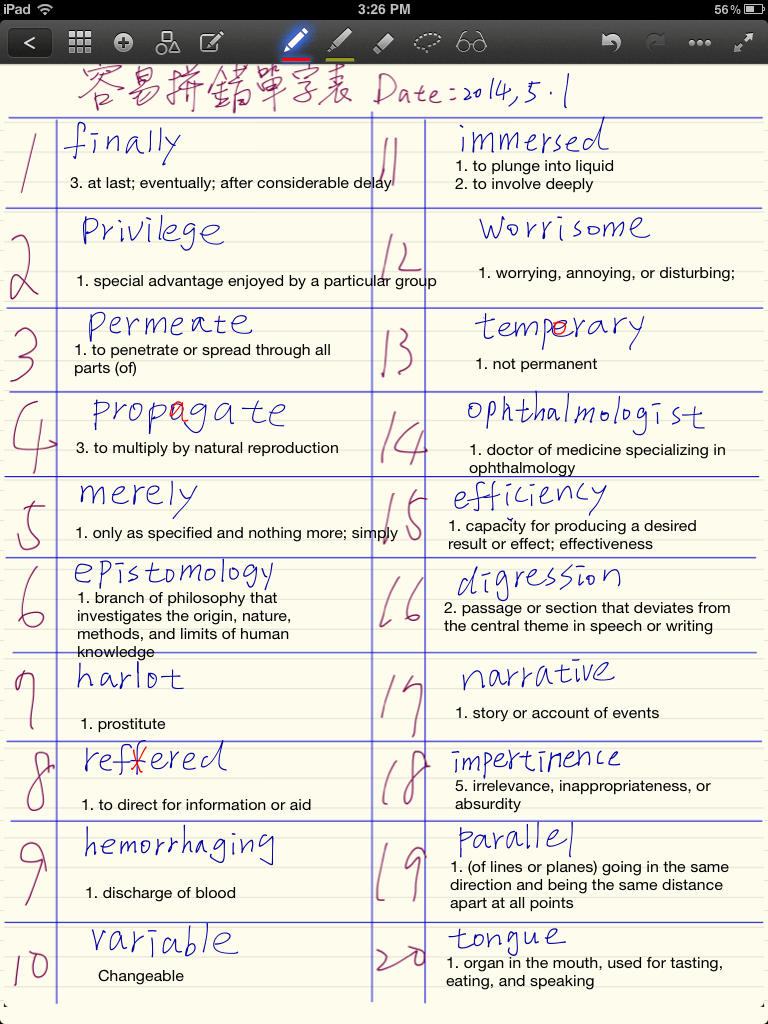 iPad 3:26 PM 56%
容易拼錯單字表 Date:2014,5.1
1 finally
3. at last; eventually; after considerable delay
2 Privilege
1. special advantage enjoyed by a particular group
3 Permeate
1. to penetrate or spread through all
parts (of)
4 propagate
3. to multiply by natural reproduction
5 merely
1. only as specified and nothing more; simply
6 epistomology
1. branch of philosophy that
investigates the origin, nature,
methods, and limits of human
knowledge
7 harlot
1. prostitute
8 reffered
1. to direct for information or aid
9 hemorrhaging
1. discharge of blood
10 variable
Changeable
11 immersed
1. to plunge into liquid
2. to involve deeply
12 Worrisome
1. worrying, annoying, or disturbing;
13 temporary
1. not permanent
14 ophthalmologist
1. doctor of medicine specializing in
ophthalmology
15 efficiency
1. capacity for producing a desired
result or effect; effectiveness
16 digression
2. passage or section that deviates from
the central theme in speech or writing
17 narrative
1. story or account of events
18 impertinence
5. irrelevance, inappropriateness, or
absurdity
19 parallel
1. (of lines or planes) going in the same
direction and being the same distance
apart at all points
20 tongue
1. organ in the mouth, used for tasting,
eating, and speaking